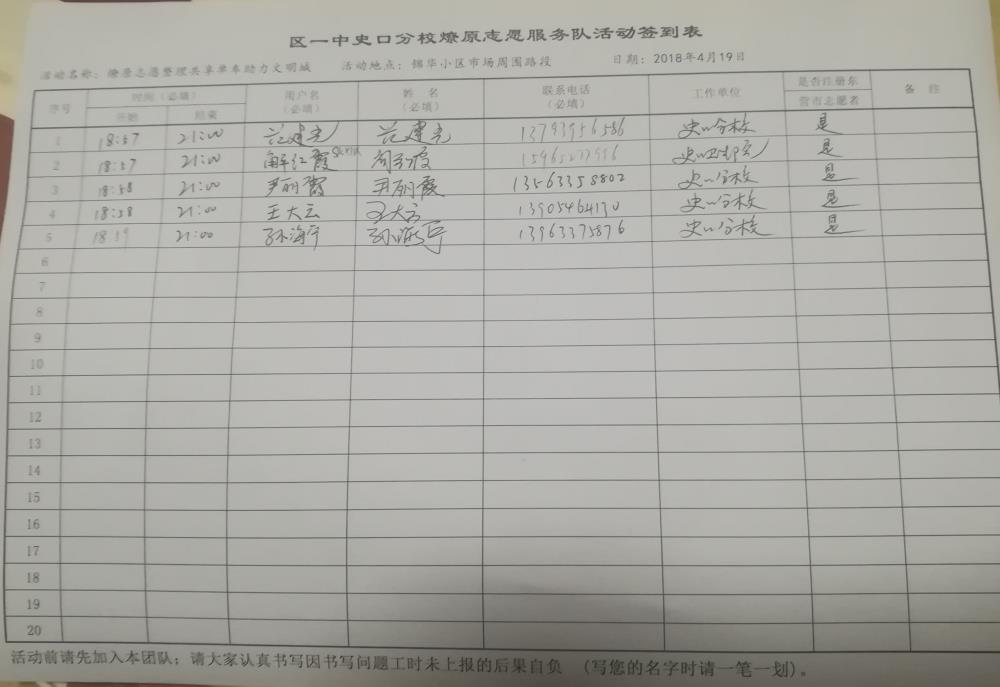 区一中史口分校燎原志愿服务队活动签到表
活动名称：燎原志愿整理共享单车助力文明城 活动地点：锦华小区市场周围路段 日期：2018年4月19日
序号 时间（必填） 用户名（必填） 姓 名（必填） 联系电话（必填） 工作单位 是否注册东营市志愿者 备 注
开始 结束
1 18:57 21:00 范建亮 范建亮 13793956586 史口分校 是
2 18:57 21:00 解红霞 史口卫生院 是
3 18:58 21:00 尹丽霞 尹丽霞 13563358802 史口分校 是
4 18:58 21:00 王大云 王大云 13905464190 史口分校 是
5 18:59 21:00 孙海宁 孙海宁 13963375876 史口分校 是
6
7
8
9
10
11
12
13
14
15
16
17
18
19
20
活动前请先加入本团队；请大家认真书写因书写问题工时未上报的后果自负 （写您的名字时请一笔一划）。